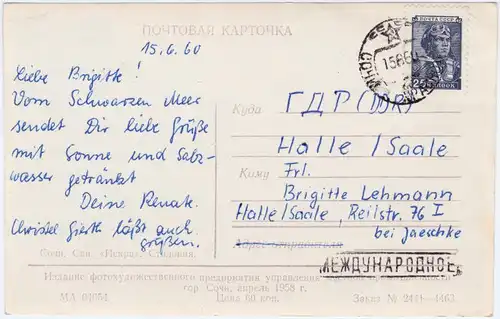 ПОЧТОВАЯ КАРТОЧКА
15.6.60
Liebe Brigitte!
Vom Schwarzen Meer
sendet Dir liebe Grüße
mit Sonne und Salz-
wasser getränkt
Deine Renate.
Christel Gierth läßt auch
grüßen.
Куда
ГДР (DDR)
Halle/Saale
Кому
Frl.
Brigitte Lehmann
Halle/Saale, Reilstr. 76 I
bei Jaeschke
Адрес отправителя
МЕЖДУНАРОДНОЕ
ПОЧТА СССР
Сочи. Сан. «Искра». Столовая.
Издание фотохудожественного предприятия управления
гор. Сочи, апрель 1958 г.
МА 04054
Цена 60 коп.
Заказ № 2441—1463